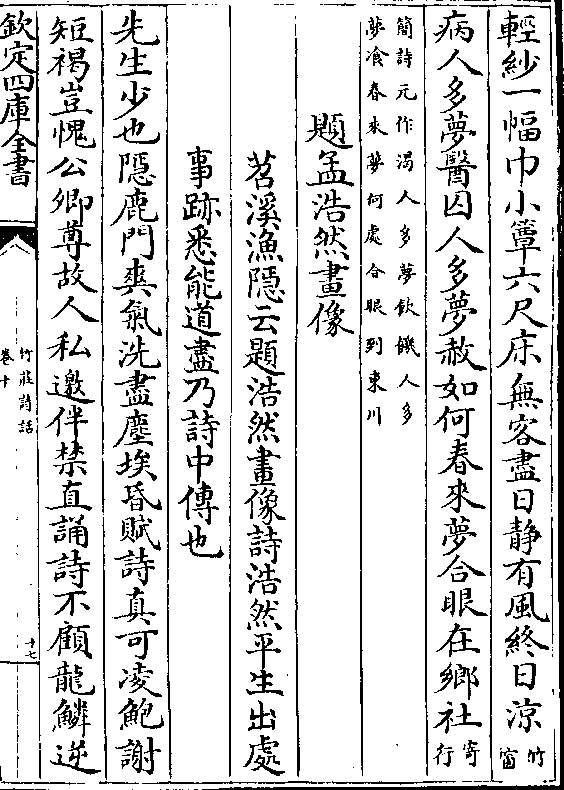 輕紗一幅巾小簟六尺床無客盡日静有風終日涼竹窗
病人多夢醫囚人多夢赦如何春來夢合眼在鄉社寄行
簡詩元作渴人多夢飲饑人多
夢飡春來夢何處合眼到東川
題孟浩然畫像
苕溪漁隱云題浩然畫像詩浩然平生出處
事跡悉能道盡乃詩中傳也
先生少也隱鹿門爽氣洗盡塵埃昏賦詩真可凌鮑謝
短褐豈愧公卿尊故人私邀伴禁直誦詩不顧龍鱗逆
欽定四庫全書
竹莊詩話
卷十
十七